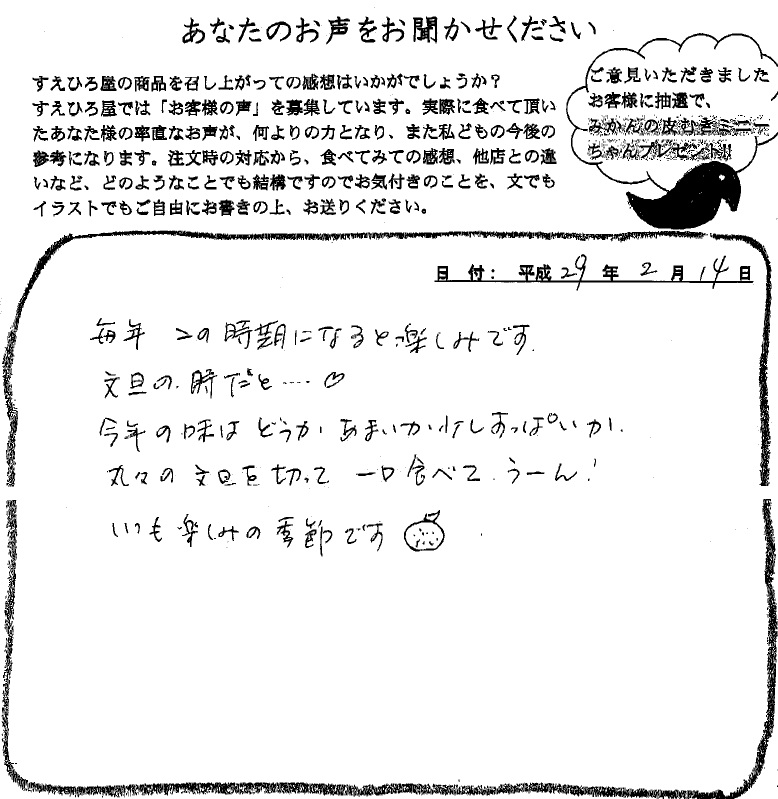 あなたのお声をお聞かせください
すえひろ屋の商品を召し上がっての感想はいかがでしょうか？
すえひろ屋では「お客様の声」を募集しています。実際に食べて頂い
たあなた様の率直なお声が、何よりの力となり、また私どもの今後の
参考になります。注文時の対応から、食べてみての感想、他店との違
いなど、どのようなことでも結構ですのでお気付きのことを、文でも
イラストでもご自由にお書きの上、お送りください。
ご意見いただきました
お客様に抽選で、
みかんの皮むきミニー
ちゃんプレゼント!!
日 付： 平成 29 年 2 月 14 日
毎年 この時期になると楽しみです
文旦の時だと……♡
今年の味は どうか あまいか少しすっぱいか.
丸々の文旦を切って 一口食べて うーん!
いつも楽しみの季節です